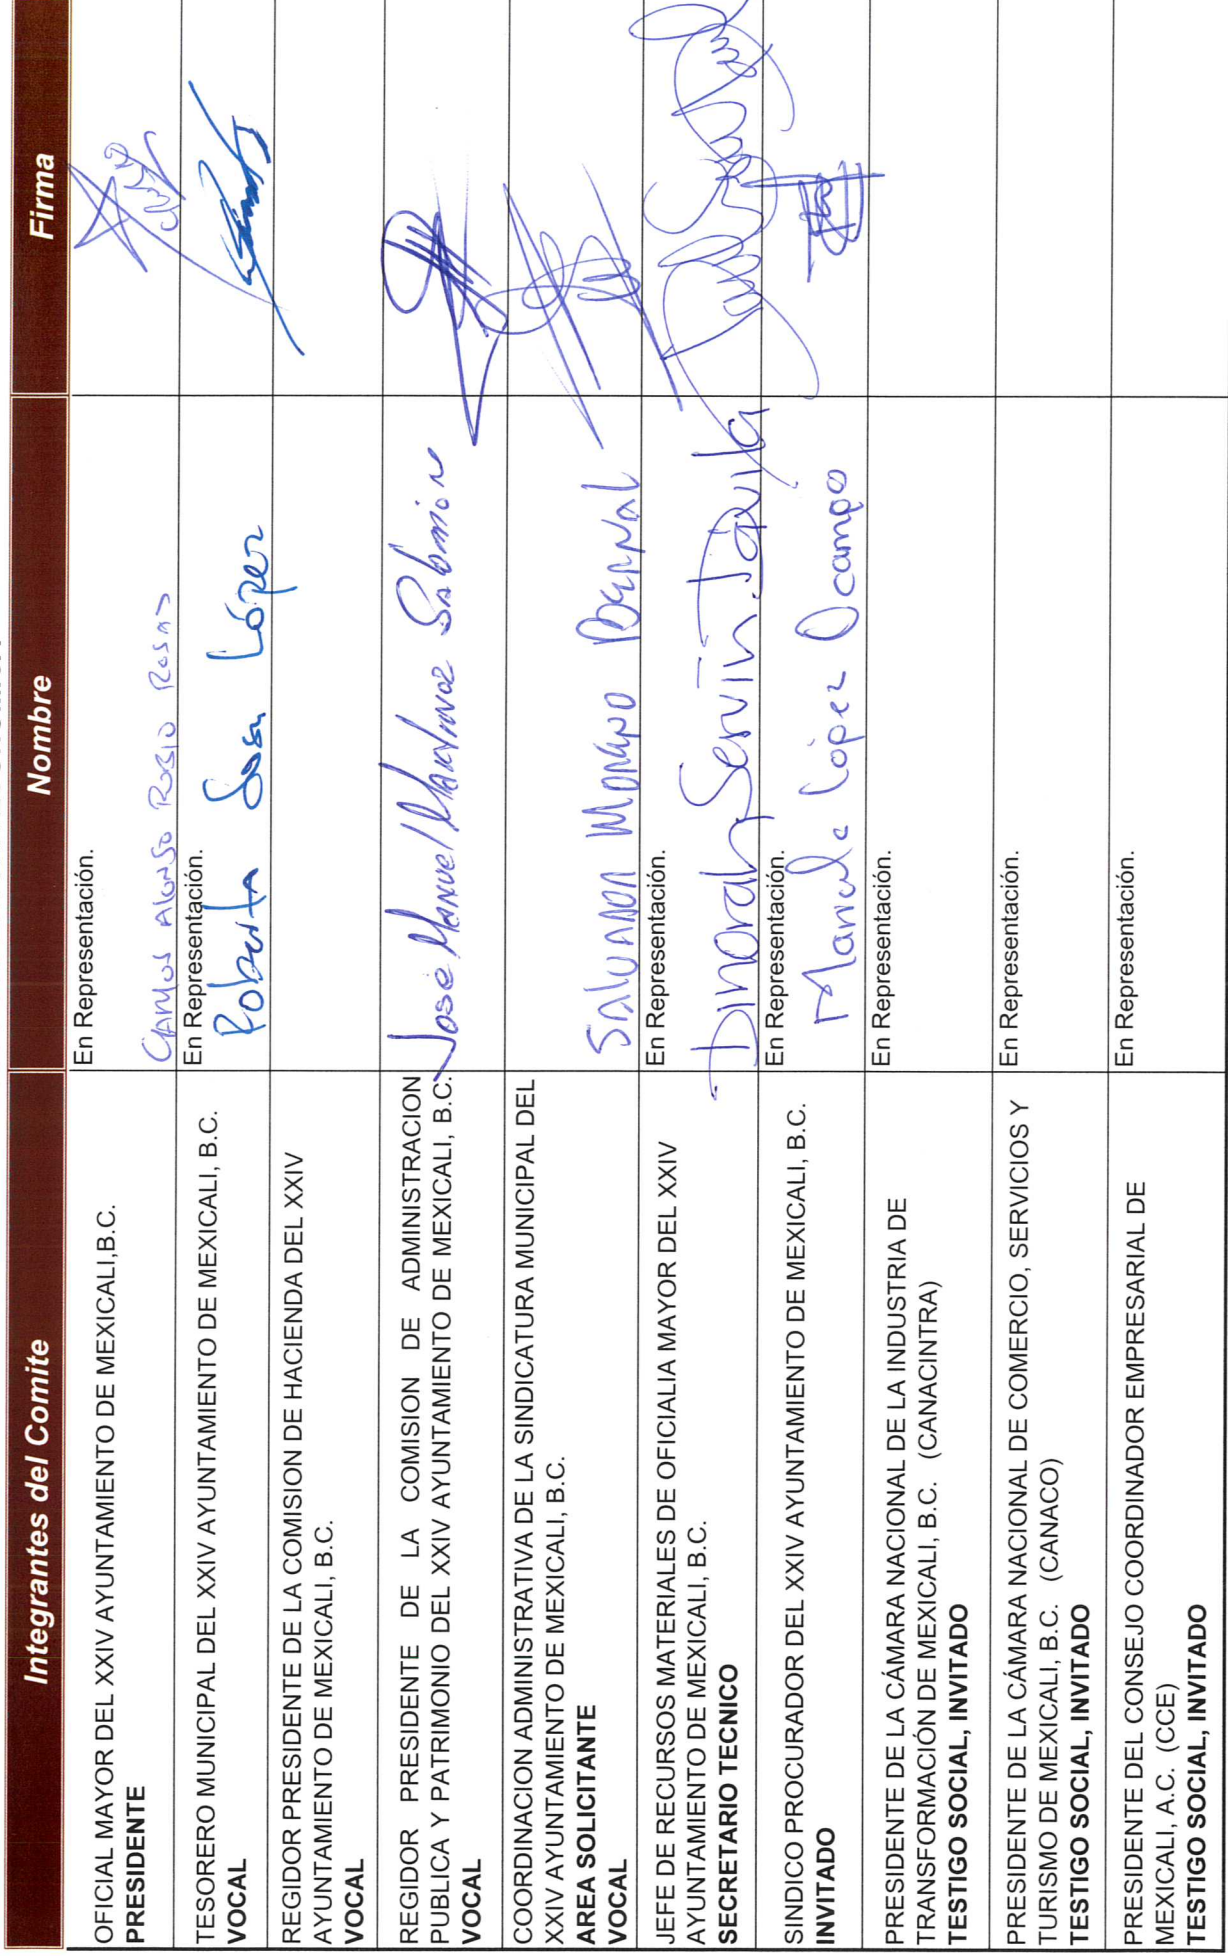 Integrantes del Comite Nombre Firma
OFICIAL MAYOR DEL XXIV AYUNTAMIENTO DE MEXICALI,B.C.
PRESIDENTE
En Representación.
Carlos Alonso Rosas
TESORERO MUNICIPAL DEL XXIV AYUNTAMIENTO DE MEXICALI, B.C.
VOCAL
En Representación.
Roberta Sosa López
REGIDOR PRESIDENTE DE LA COMISION DE HACIENDA DEL XXIV
AYUNTAMIENTO DE MEXICALI, B.C.
VOCAL
REGIDOR PRESIDENTE DE LA COMISION DE ADMINISTRACION
PUBLICA Y PATRIMONIO DEL XXIV AYUNTAMIENTO DE MEXICALI, B.C.
VOCAL
José Manuel Martinez
COORDINACION ADMINISTRATIVA DE LA SINDICATURA MUNICIPAL DEL
XXIV AYUNTAMIENTO DE MEXICALI, B.C.
AREA SOLICITANTE
VOCAL
Salvador Moreno Bernal
JEFE DE RECURSOS MATERIALES DE OFICIALIA MAYOR DEL XXIV
AYUNTAMIENTO DE MEXICALI, B.C.
SECRETARIO TECNICO
En Representación.
Dinorah Servin Davila
SINDICO PROCURADOR DEL XXIV AYUNTAMIENTO DE MEXICALI, B.C.
INVITADO
En Representación.
López Ocampo
PRESIDENTE DE LA CÁMARA NACIONAL DE LA INDUSTRIA DE
TRANSFORMACIÓN DE MEXICALI, B.C. (CANACINTRA)
TESTIGO SOCIAL, INVITADO
En Representación.
PRESIDENTE DE LA CÁMARA NACIONAL DE COMERCIO, SERVICIOS Y
TURISMO DE MEXICALI, B.C. (CANACO)
TESTIGO SOCIAL, INVITADO
En Representación.
PRESIDENTE DEL CONSEJO COORDINADOR EMPRESARIAL DE
MEXICALI, A.C. (CCE)
TESTIGO SOCIAL, INVITADO
En Representación.